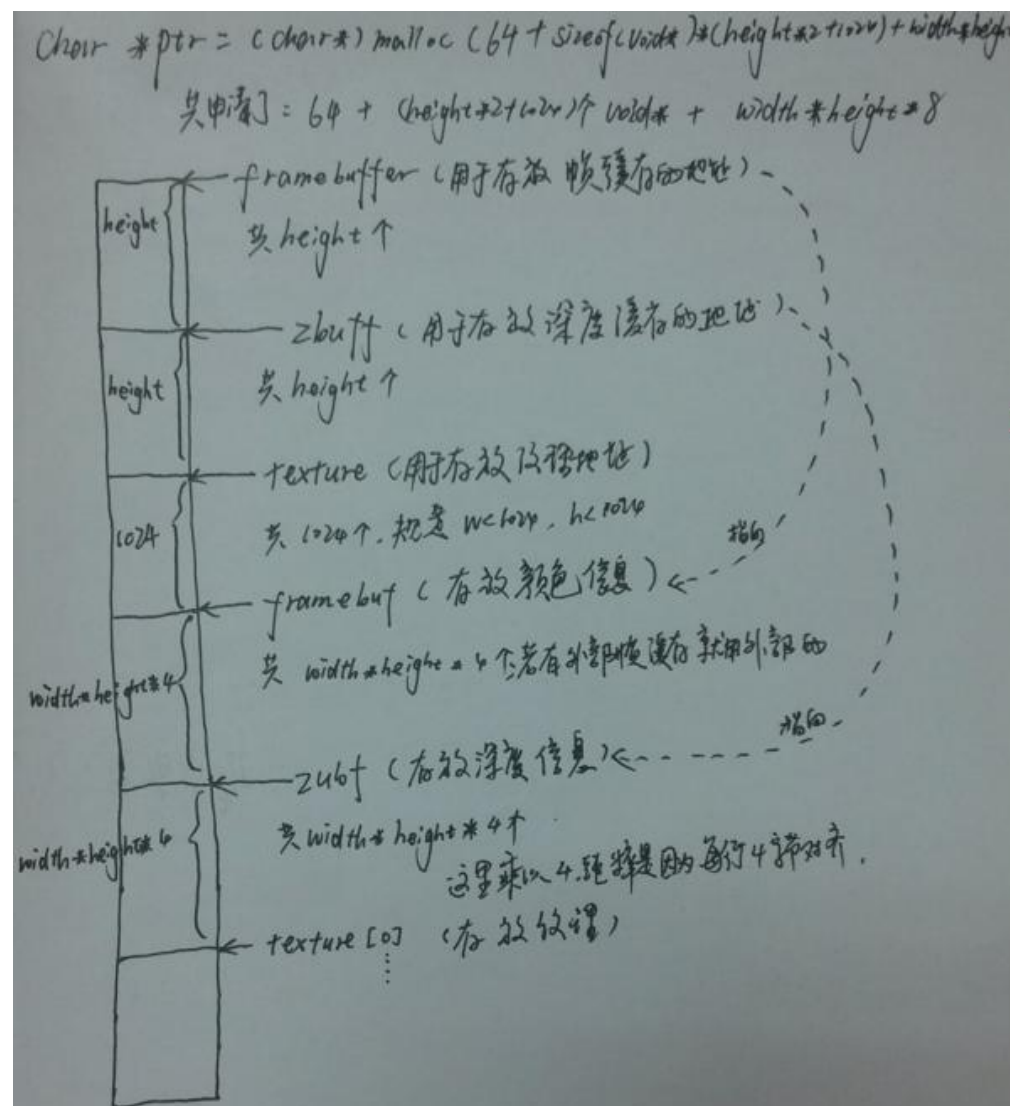 char *ptr = (char*) malloc (64 + sizeof(void*)*(height*2+1024)+width*heigh
共申请了: 64 + (height*2+1024)个 void* + width*height*8
framebuffer (用于存放 帧缓存的地址)
height
共 height 个
zbuff (用于存放 深度缓存的地址)
height
共 height 个
texture (用于存放纹理地址)
1024
共 1024个, 规定 w<1024, h<1024
指向
framebuf (存放颜色信息)
共 width*height*4个,若有外部帧缓存就用外部的
width*height*4
指向
zubf (存放深度信息)
共 width*height*4个
width*height*4
这里乘以4, 是因为每行4字节对齐.
texture [0] (存放纹理)